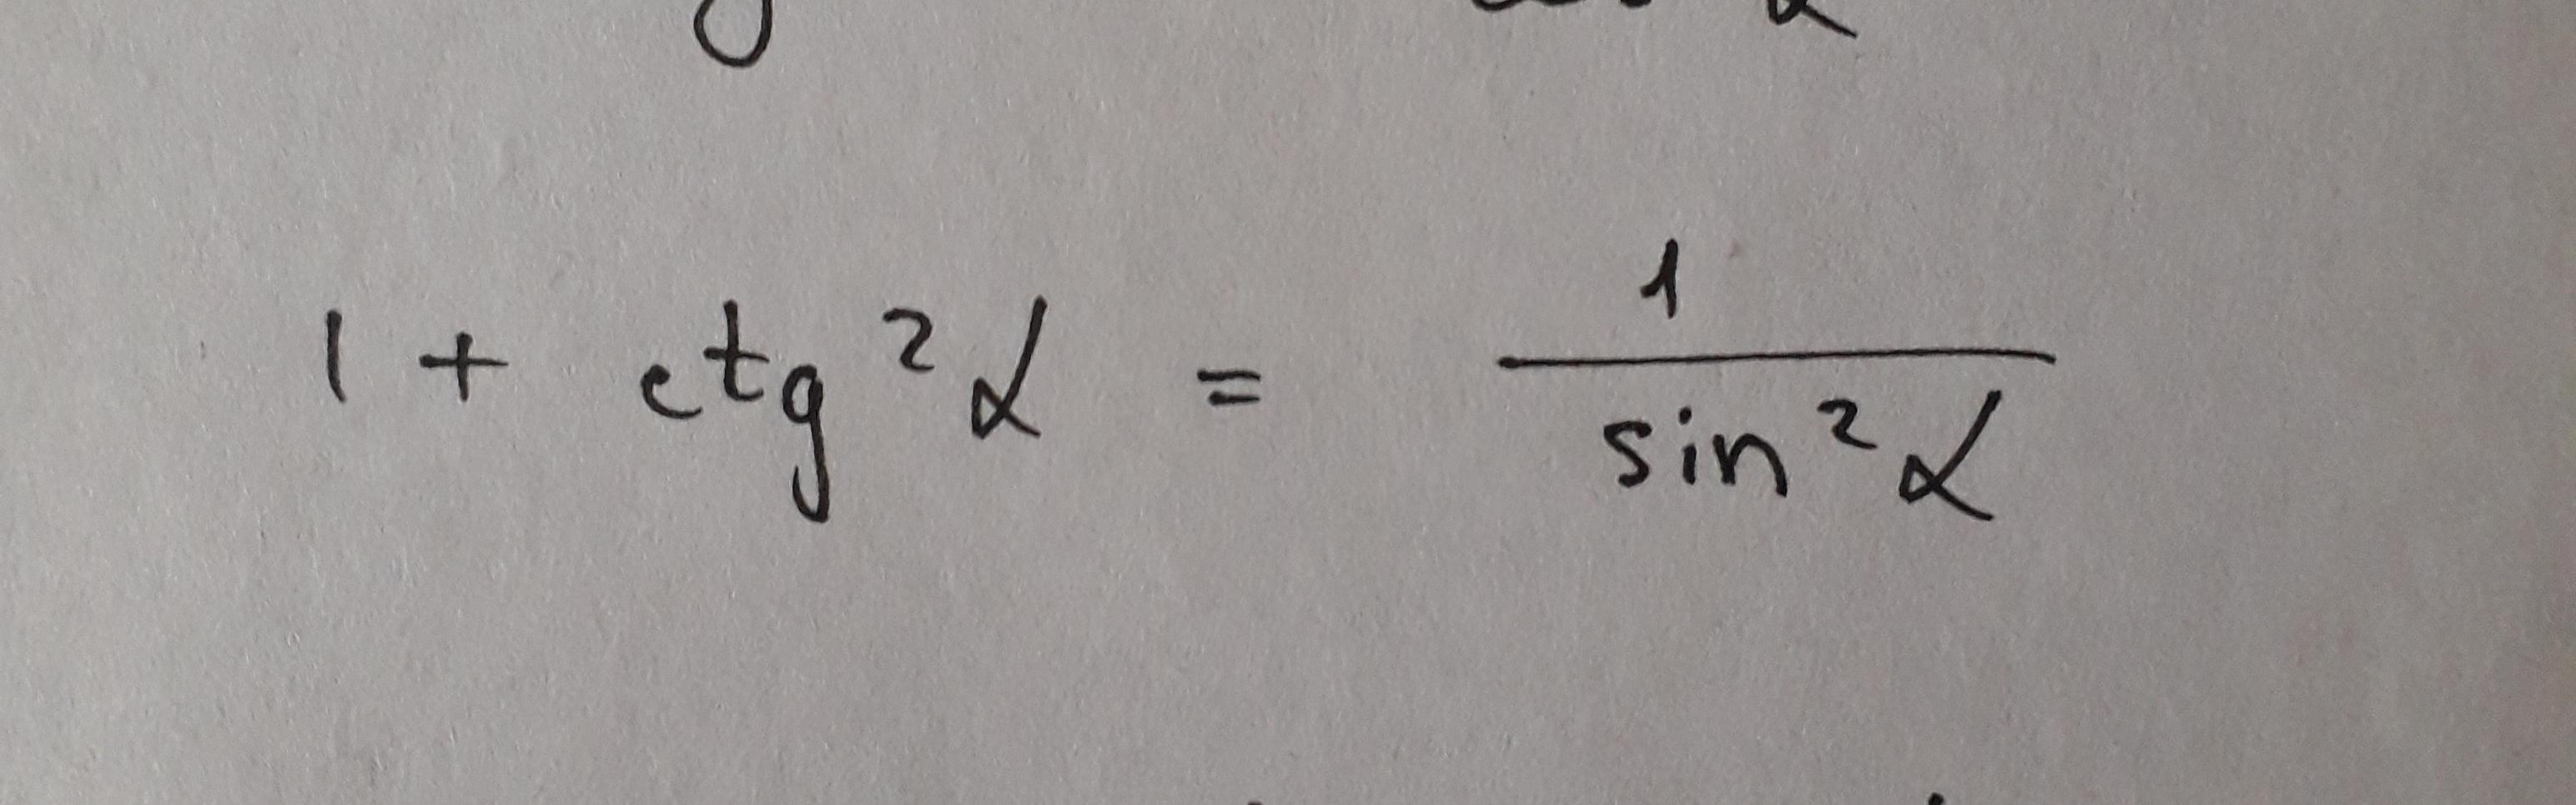 1 + ctg²α = 1 / sin²α